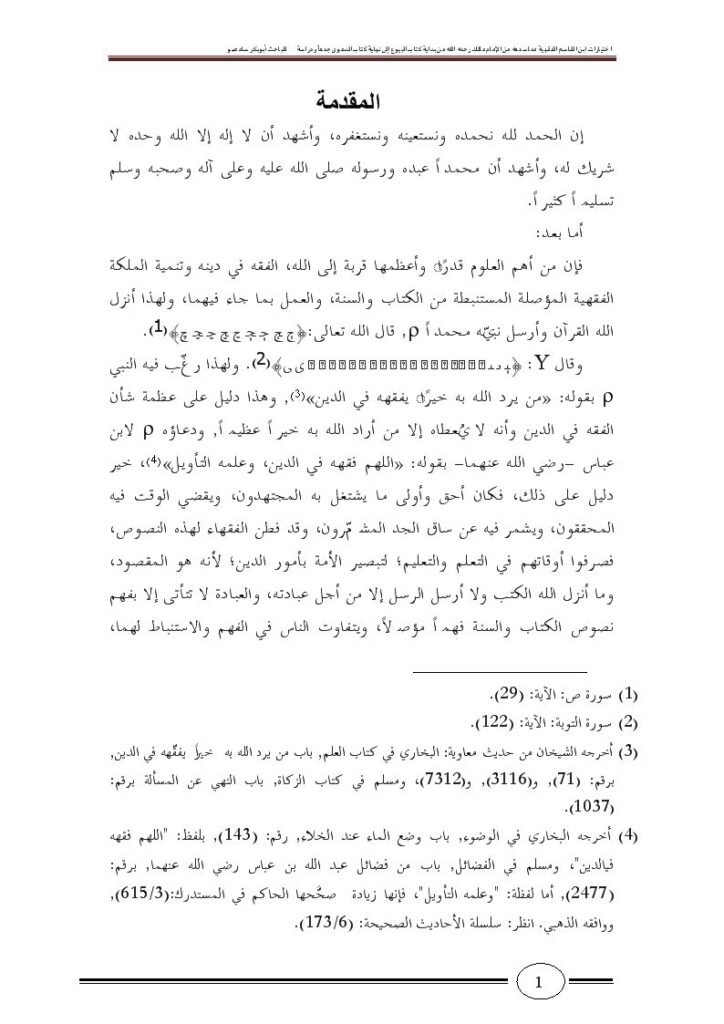 اختيارات ابن القاسم الفقهية مما سمعه من الإمام مالك رحمه الله من بداية كتاب البيوع إلى نهاية كتاب الدعوى جمعاً ودراسة للباحث أبوبكر
المقدمة
إن الحمد لله نحمده ونستعينه ونستغفره، وأشهد أن لا إله إلا الله وحده لا
شريك له، وأشهد أن محمداً عبده ورسوله صلى الله عليه وعلى آله وصحبه وسلم
تسليماً كثيراً.
أما بعد:
فإن من أهم العلوم قدرًا وأعظمها قربة إلى الله، الفقه في دينه وتنمية الملكة
الفقهية المؤصلة المستنبطة من الكتاب والسنة، والعمل بما جاء فيهما، ولهذا أنزل
الله القرآن وأرسل نبيّه محمداً ρ, قال الله تعالى:﴿ﭼ ﭼ ﭼ ﭼ ﭼ ﭼ ﭼ﴾(1).
وقال Y: ﴿ﯨ ﯩ﴾(2). ولهذا رغّب فيه النبي
ρ بقوله: «من يرد الله به خيرًا يفقهه في الدين»(3), وهذا دليل على عظمة شأن
الفقه في الدين وأنه لا يُعطاه إلا من أراد الله به خيراً عظيماً, ودعاؤه ρ لابن
عباس –رضي الله عنهما– بقوله: «اللهم فقهه في الدين، وعلمه التأويل»(4)، خير
دليل على ذلك، فكان أحق وأولى ما يشتغل به المجتهدون، ويقضي الوقت فيه
المحققون، ويشمر فيه عن ساق الجد المشمّرون، وقد فطن الفقهاء لهذه النصوص،
فصرفوا أوقاتهم في التعلم والتعليم؛ لتبصير الأمة بأمور الدين؛ لأنه هو المقصود،
وما أنزل الله الكتب ولا أرسل الرسل إلا من أجل عبادته، والعبادة لا تتأتى إلا بفهم
نصوص الكتاب والسنة فهماً مؤصلاً، ويتفاوت الناس في الفهم والاستنباط لهما،
(1) سورة ص: الآية: (29).
(2) سورة التوبة: الآية: (122).
(3) أخرجه الشيخان من حديث معاوية: البخاري في كتاب العلم, باب من يرد الله به خيرًا يفقّهه في الدين,
برقم: (71), و(3116), و(7312)، ومسلم في كتاب الزكاة, باب النهي عن المسألة برقم:
(1037).
(4) أخرجه البخاري في الوضوء, باب وضع الماء عند الخلاء, رقم: (143), بلفظ: "اللهم فقهه
فيالدين"، ومسلم في الفضائل, باب من فضائل عبد الله بن عباس رضي الله عنهما, برقم:
(2477), أما لفظة: "وعلمه التأويل"، فإنها زيادة صحَّحها الحاكم في المستدرك:(615/3),
ووافقه الذهبي. انظر: سلسلة الأحاديث الصحيحة: (173/6).
1